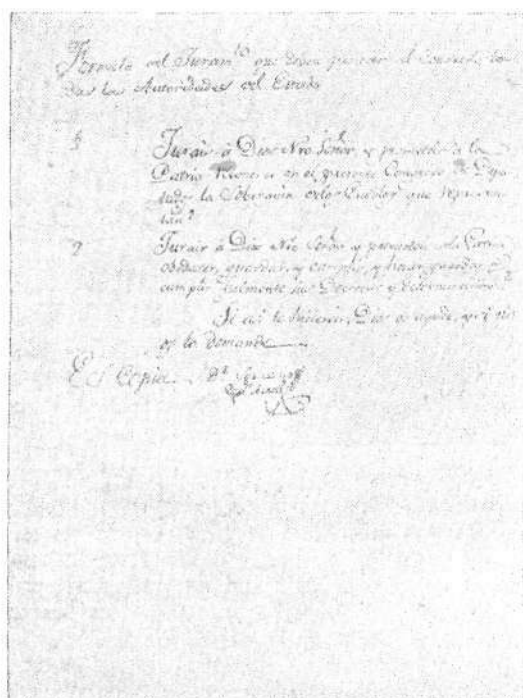 Formula del Juram.to que deven prestar al Congreso to-
das las Autoridades del Estado
1 Jurais á Dios Nro Señor, y prometeis á la
Patria en el presente Congreso de Dipu-
tados la Soberania
2 Jurais á Dios Nro Señor y prometeis á la Patria
obedecer, guardar, y cumplir, y hacer guardar, y
cumplir fielmente sus Decretos y determinaciones?
Si asi lo hiciereis, Dios os ayude, y si no
os lo demande
Es Copia